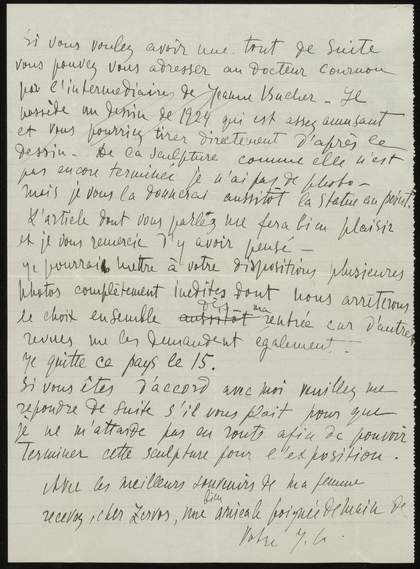 Si vous voulez avoir une tout de suite
vous pouvez vous adresser au docteur Cournou
par l'intermediaires de Jeanne Bucher - Il
possède un dessin de 1924 qui est assez amusant
et vous pourriez tirer directement d'après ce
dessin - De la sculpture comme elle n'est
pas encore terminée je n'ai pas de photo -
mais je vous la donnerai aussitôt la statue au point.
L'article dont vous parlez me fera bien plaisir
et je vous remercie d'y avoir pensé -
Je pourrai mettre à votre dispositions plusieures
photos complètement inedites dont nous arrêterons
le choix ensemble aussitôt dès ma rentrée car d'autres
revues me les demandent egalement -
Je quitte ce pays le 15.
Si vous êtes d'accord avec moi veuillez me
repondre de suite s'il vous plait pour que
je ne m'attarde pas en route afin de pouvoir
terminer cette sculpture pour l'exposition.
Avec les meilleurs souvenirs de ma femme
recevez, cher Zervos, une bien amicale poignée de main de
Votre